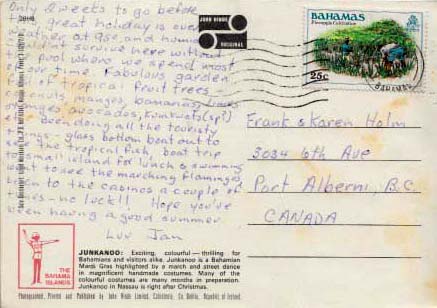 Only 2 weeks to go before
great holiday is over
weather at 95c, and humid
survive here without
pool where we spend most
our time. Fabulous garden
of tropical fruit trees
coconut, mangoes, bananas, limes
oranges, avocados, Kumkwats(sp?)
etc. Been doing all the touristy
things - glass bottom boat out to
see the tropical fish, boat trip
to small island for lunch & swimming
want to see the marching flamingoes
been to the casinos a couple of
times - no luck!! Hope you've
been having a good summer.
Luv Jan
JUNKANOO: Exciting, colourful — thrilling for
Bahamians and visitors alike. Junkanoo is a Bahamian
Mardi Gras highlighted by a march and street dance
in magnificent handmade costumes. Many of the
colourful costumes are many months in preparation.
Junkanoo in Nassau is right after Christmas.
THE
BAHAMA
ISLANDS
Photographed, Printed and Published by John Hinde Limited, Cabinteely, Co. Dublin, Republic of Ireland.
JOHN HINDE
ORIGINAL
BAHAMAS
Pineapple Cultivation
25c
BAHAMAS
Frank & Karen Holm
3034 6th Ave
Port Alberni, B.C.
CANADA